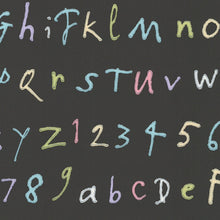 G h i f k l m n o
p q r s t u v w
x y z 1 2 3 4 5 6
7 8 9 a b c d e f